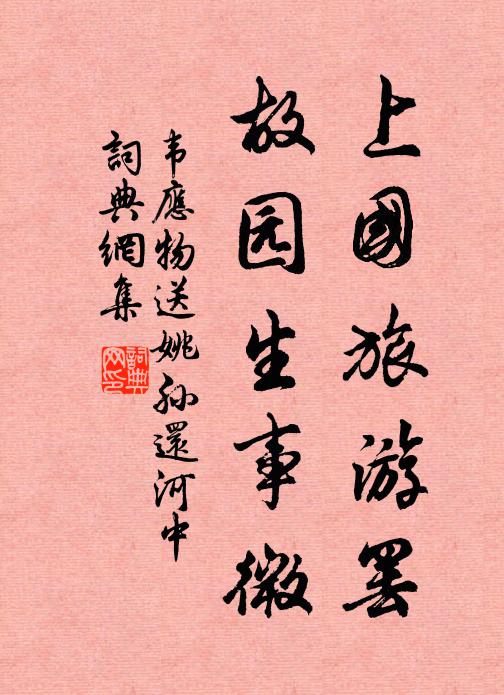 上國旅游罢
故园生事微
韦應物送姚孙還河中
詞典網集
詞典网印